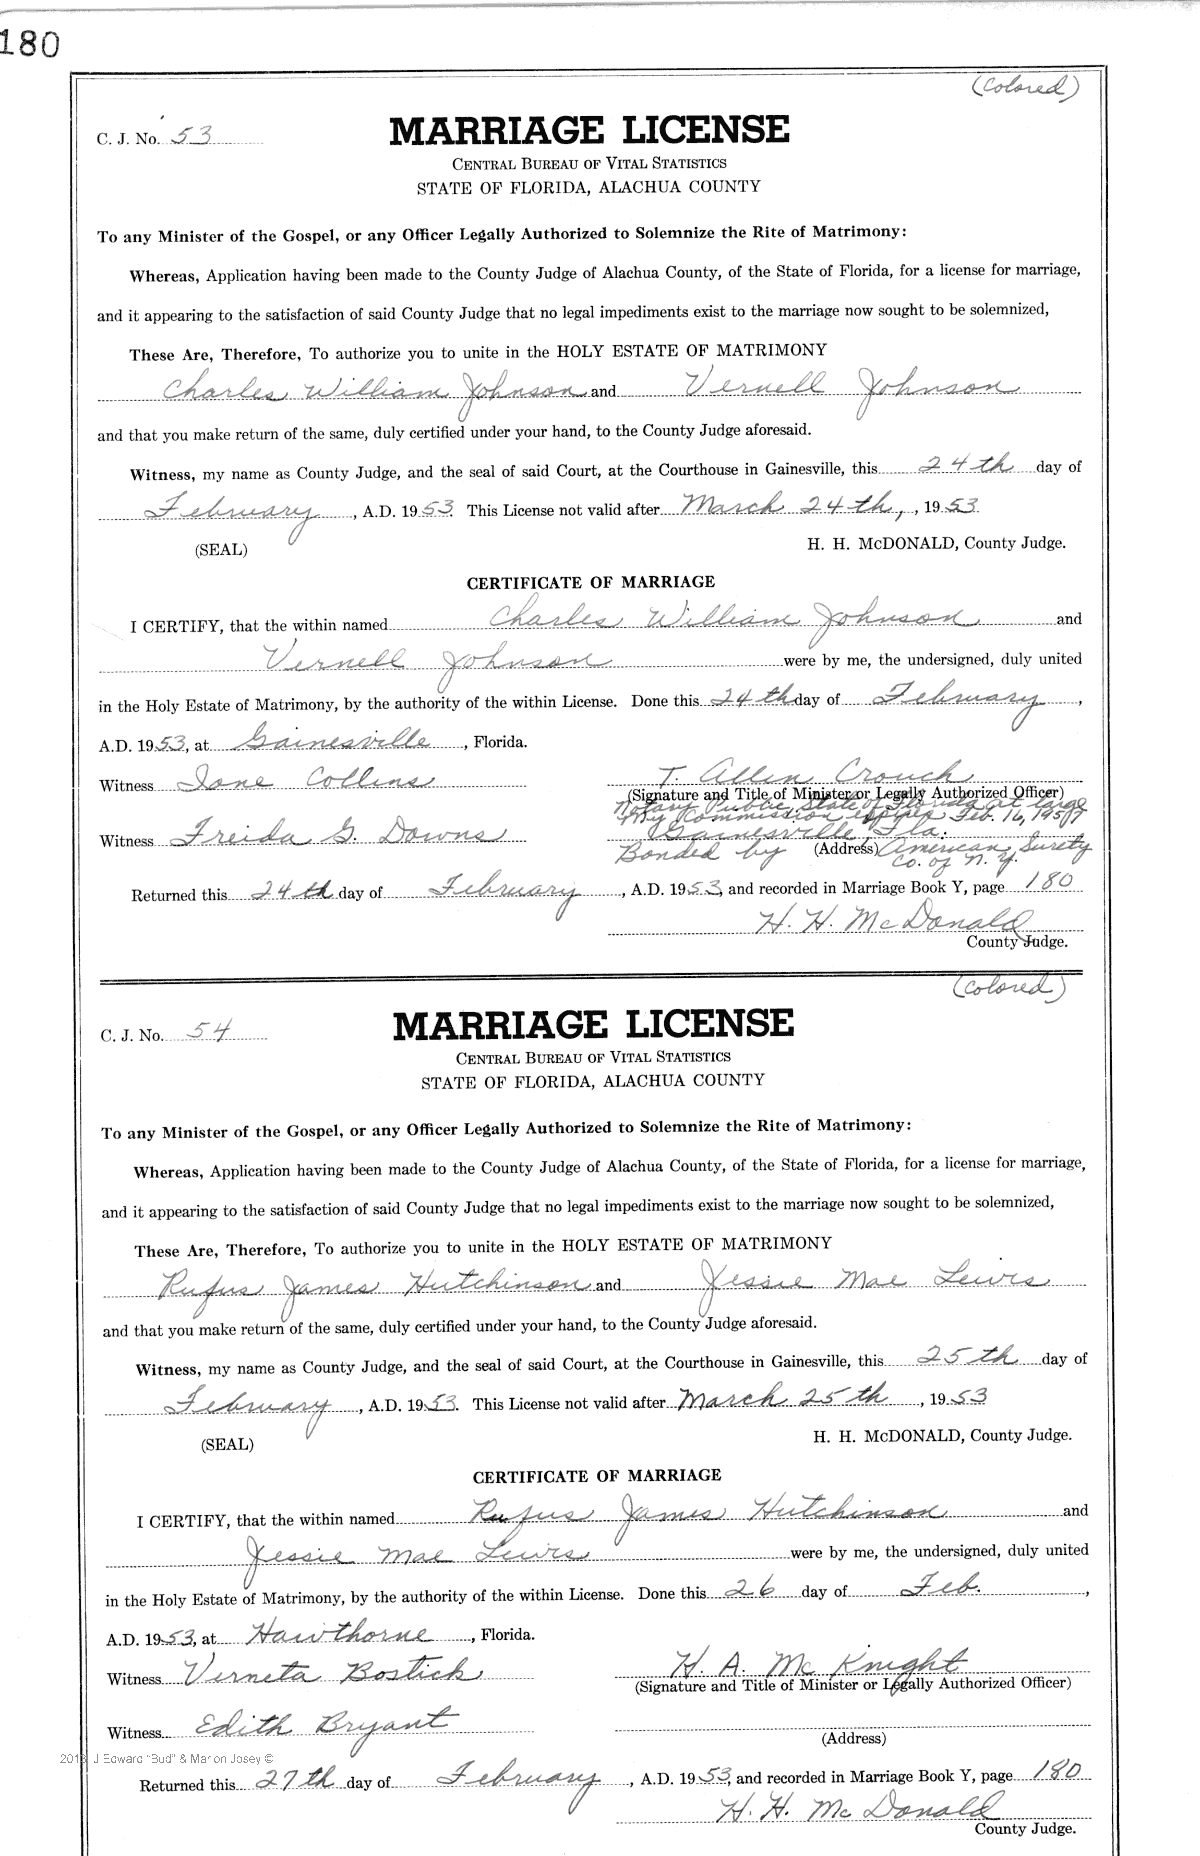 180
(Colored)
C. J. No. 53
MARRIAGE LICENSE
CENTRAL BUREAU OF VITAL STATISTICS
STATE OF FLORIDA, ALACHUA COUNTY
To any Minister of the Gospel, or any Officer Legally Authorized to Solemnize the Rite of Matrimony:
Whereas, Application having been made to the County Judge of Alachua County, of the State of Florida, for a license for marriage,
and it appearing to the satisfaction of said County Judge that no legal impediments exist to the marriage now sought to be solemnized,
These Are, Therefore, To authorize you to unite in the HOLY ESTATE OF MATRIMONY
Charles William Johnson and Vernell Johnson
and that you make return of the same, duly certified under your hand, to the County Judge aforesaid.
Witness, my name as County Judge, and the seal of said Court, at the Courthouse in Gainesville, this 24th day of
February, A.D. 1953. This License not valid after March 24th, , 1953
(SEAL) H. H. McDONALD, County Judge.
CERTIFICATE OF MARRIAGE
I CERTIFY, that the within named Charles William Johnson and
Vernell Johnson were by me, the undersigned, duly united
in the Holy Estate of Matrimony, by the authority of the within License. Done this 24th day of February,
A.D. 1953, at Gainesville, Florida.
Witness Ione Collins T. Allen Crouch
(Signature and Title of Minister or Legally Authorized Officer)
Notary Public, State of Florida at large
My Commission expires Feb. 16, 1957
Witness Freida G. Downs Gainesville, Fla.
Bonded by (Address) American Surety
Co. of N. Y.
Returned this 24th day of February, A.D. 1953, and recorded in Marriage Book Y, page 180
H. H. McDonald
County Judge.
(Colored)
C. J. No. 54
MARRIAGE LICENSE
CENTRAL BUREAU OF VITAL STATISTICS
STATE OF FLORIDA, ALACHUA COUNTY
To any Minister of the Gospel, or any Officer Legally Authorized to Solemnize the Rite of Matrimony:
Whereas, Application having been made to the County Judge of Alachua County, of the State of Florida, for a license for marriage,
and it appearing to the satisfaction of said County Judge that no legal impediments exist to the marriage now sought to be solemnized,
These Are, Therefore, To authorize you to unite in the HOLY ESTATE OF MATRIMONY
Rufus James Hutchinson and Jessie Mae Lewis
and that you make return of the same, duly certified under your hand, to the County Judge aforesaid.
Witness, my name as County Judge, and the seal of said Court, at the Courthouse in Gainesville, this 25th day of
February, A.D. 1953. This License not valid after March 25th, 1953
(SEAL) H. H. McDONALD, County Judge.
CERTIFICATE OF MARRIAGE
I CERTIFY, that the within named Rufus James Hutchinson and
Jessie Mae Lewis were by me, the undersigned, duly united
in the Holy Estate of Matrimony, by the authority of the within License. Done this 26 day of Feb.,
A.D. 1953, at Hawthorne, Florida.
Witness Verneta Bostick H. A. McKnight
(Signature and Title of Minister or Legally Authorized Officer)
Witness Edith Bryant
(Address)
J Edward "Bud" & Marion Josey ©
Returned this 27th day of February, A.D. 1953, and recorded in Marriage Book Y, page 180
H. H. McDonald
County Judge.